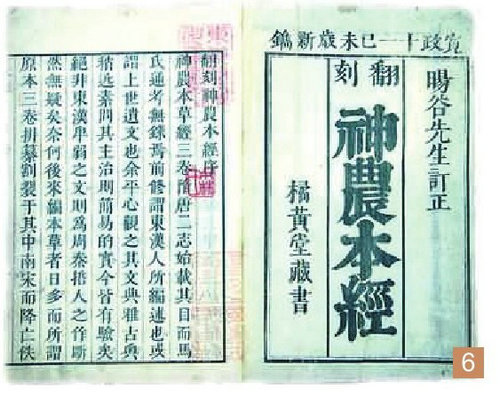 寛政十一己未歲新鐫
暘谷先生訂正
翻刻
神農本經
橘黃堂藏書
翻刻神農本經序
神農本草經三卷隋唐二志始載其目而馬
氏通考無錄焉前修謂東漢人所編述也或
謂上世遺文也余平心觀之其文典雅古奥
稍近素問其主治則簡易的實今皆有驗矣
絕非東漢卑弱之文則爲周秦搢人之作斷
然無疑矣奈何後來編本草者日多而所謂
原本三卷拼纂割裂于其中南宋而降亡佚
6